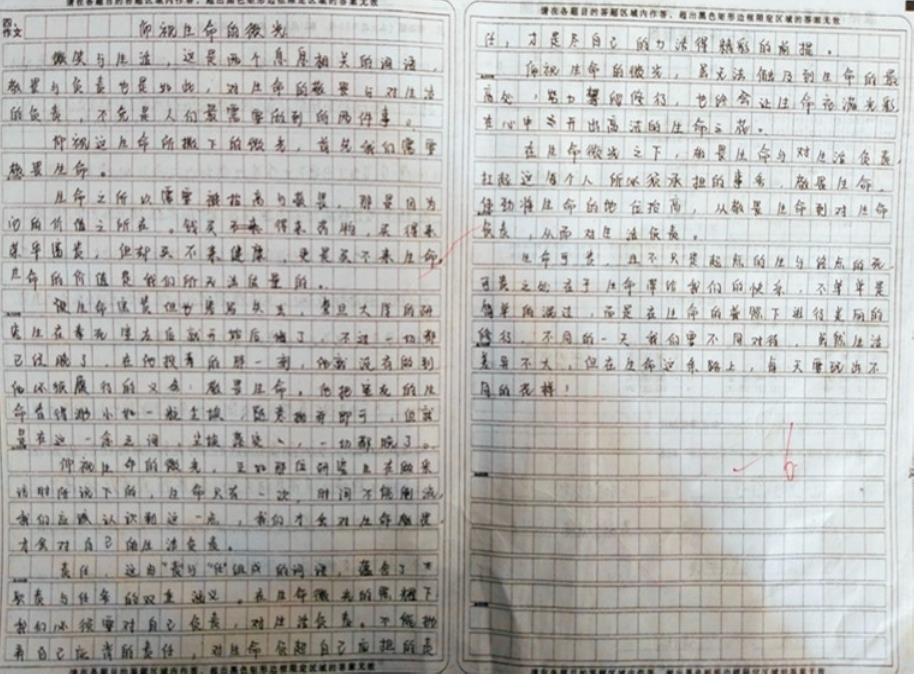 请在各题目的答题区域内作答，超出黑色矩形边框限定区域的答案无效
四、作文
仰视生命的微光
微笑与生活，这是两个息息相关的词语，
敬畏与负责也是如此，对生命的敬畏与对生活
的负责，不免是人们最需要做到的两件事。
仰视这生命所撒下的微光，首先我们需要
敬畏生命。
生命之所以需要被抬高与敬畏，那是因为
它的价值之所在。钱买得来药物，买得来
荣华富贵，但却买不来健康，更是买不来生命，
生命的价值是我们所无法估量的。
被生命
在他投毒的那一刻，他就没有做到
他必须履行的义务：敬畏生命。他把室友的生
命看得渺小如一粒尘埃，随意抛弃即可，但就
是在这一念之间，一切都晚了。
仰视生命的微光，正如那位研究生在做采
访时所说下的，生命只有一次，时间不能倒流，
我们应该认识到这一点，我们才会对生命敬畏，
才会对自己的生活负责。
责任，这由“责”与“任”组成的词语，蕴含了
负责与任务的双重涵义。在生命微光的照耀下
我们必须要对自己负责，对生活负责。不能抛
弃自己应背的责任，对生命负起自己应担的责
请在各题目的答题区域内作答，超出黑色矩形边框限定区域的答案无效
请在各题目的答题区域内作答，超出黑色矩形边框限定区域的答案无效
任，才是尽自己的力活得精彩的前提。
仰视生命的微光，虽无法触及到生命的最
高处，努力攀爬路径，也终会让生命充满光彩
在心中开出高洁的生命之花。
在生命微光之下，敬畏生命与对生活负责，
扛起这每个人所必须承担的事务，敬畏生命，
使劲将生命的地位抬高，从敬畏生命到对生命
负责，从而对生活负责。
生命可贵，且不只是起点的生与终点的死，
可贵之处在于生命带给我们的快乐，不单单是
简单的混过，而是在生命的
路径，不同的一天我们要不同对待，虽然生活
差异不大，但在生命这条路上，每天要玩出不
同的花样！
6
请在各题目的答题区域内作答，超出黑色矩形边框限定区域的答案无效